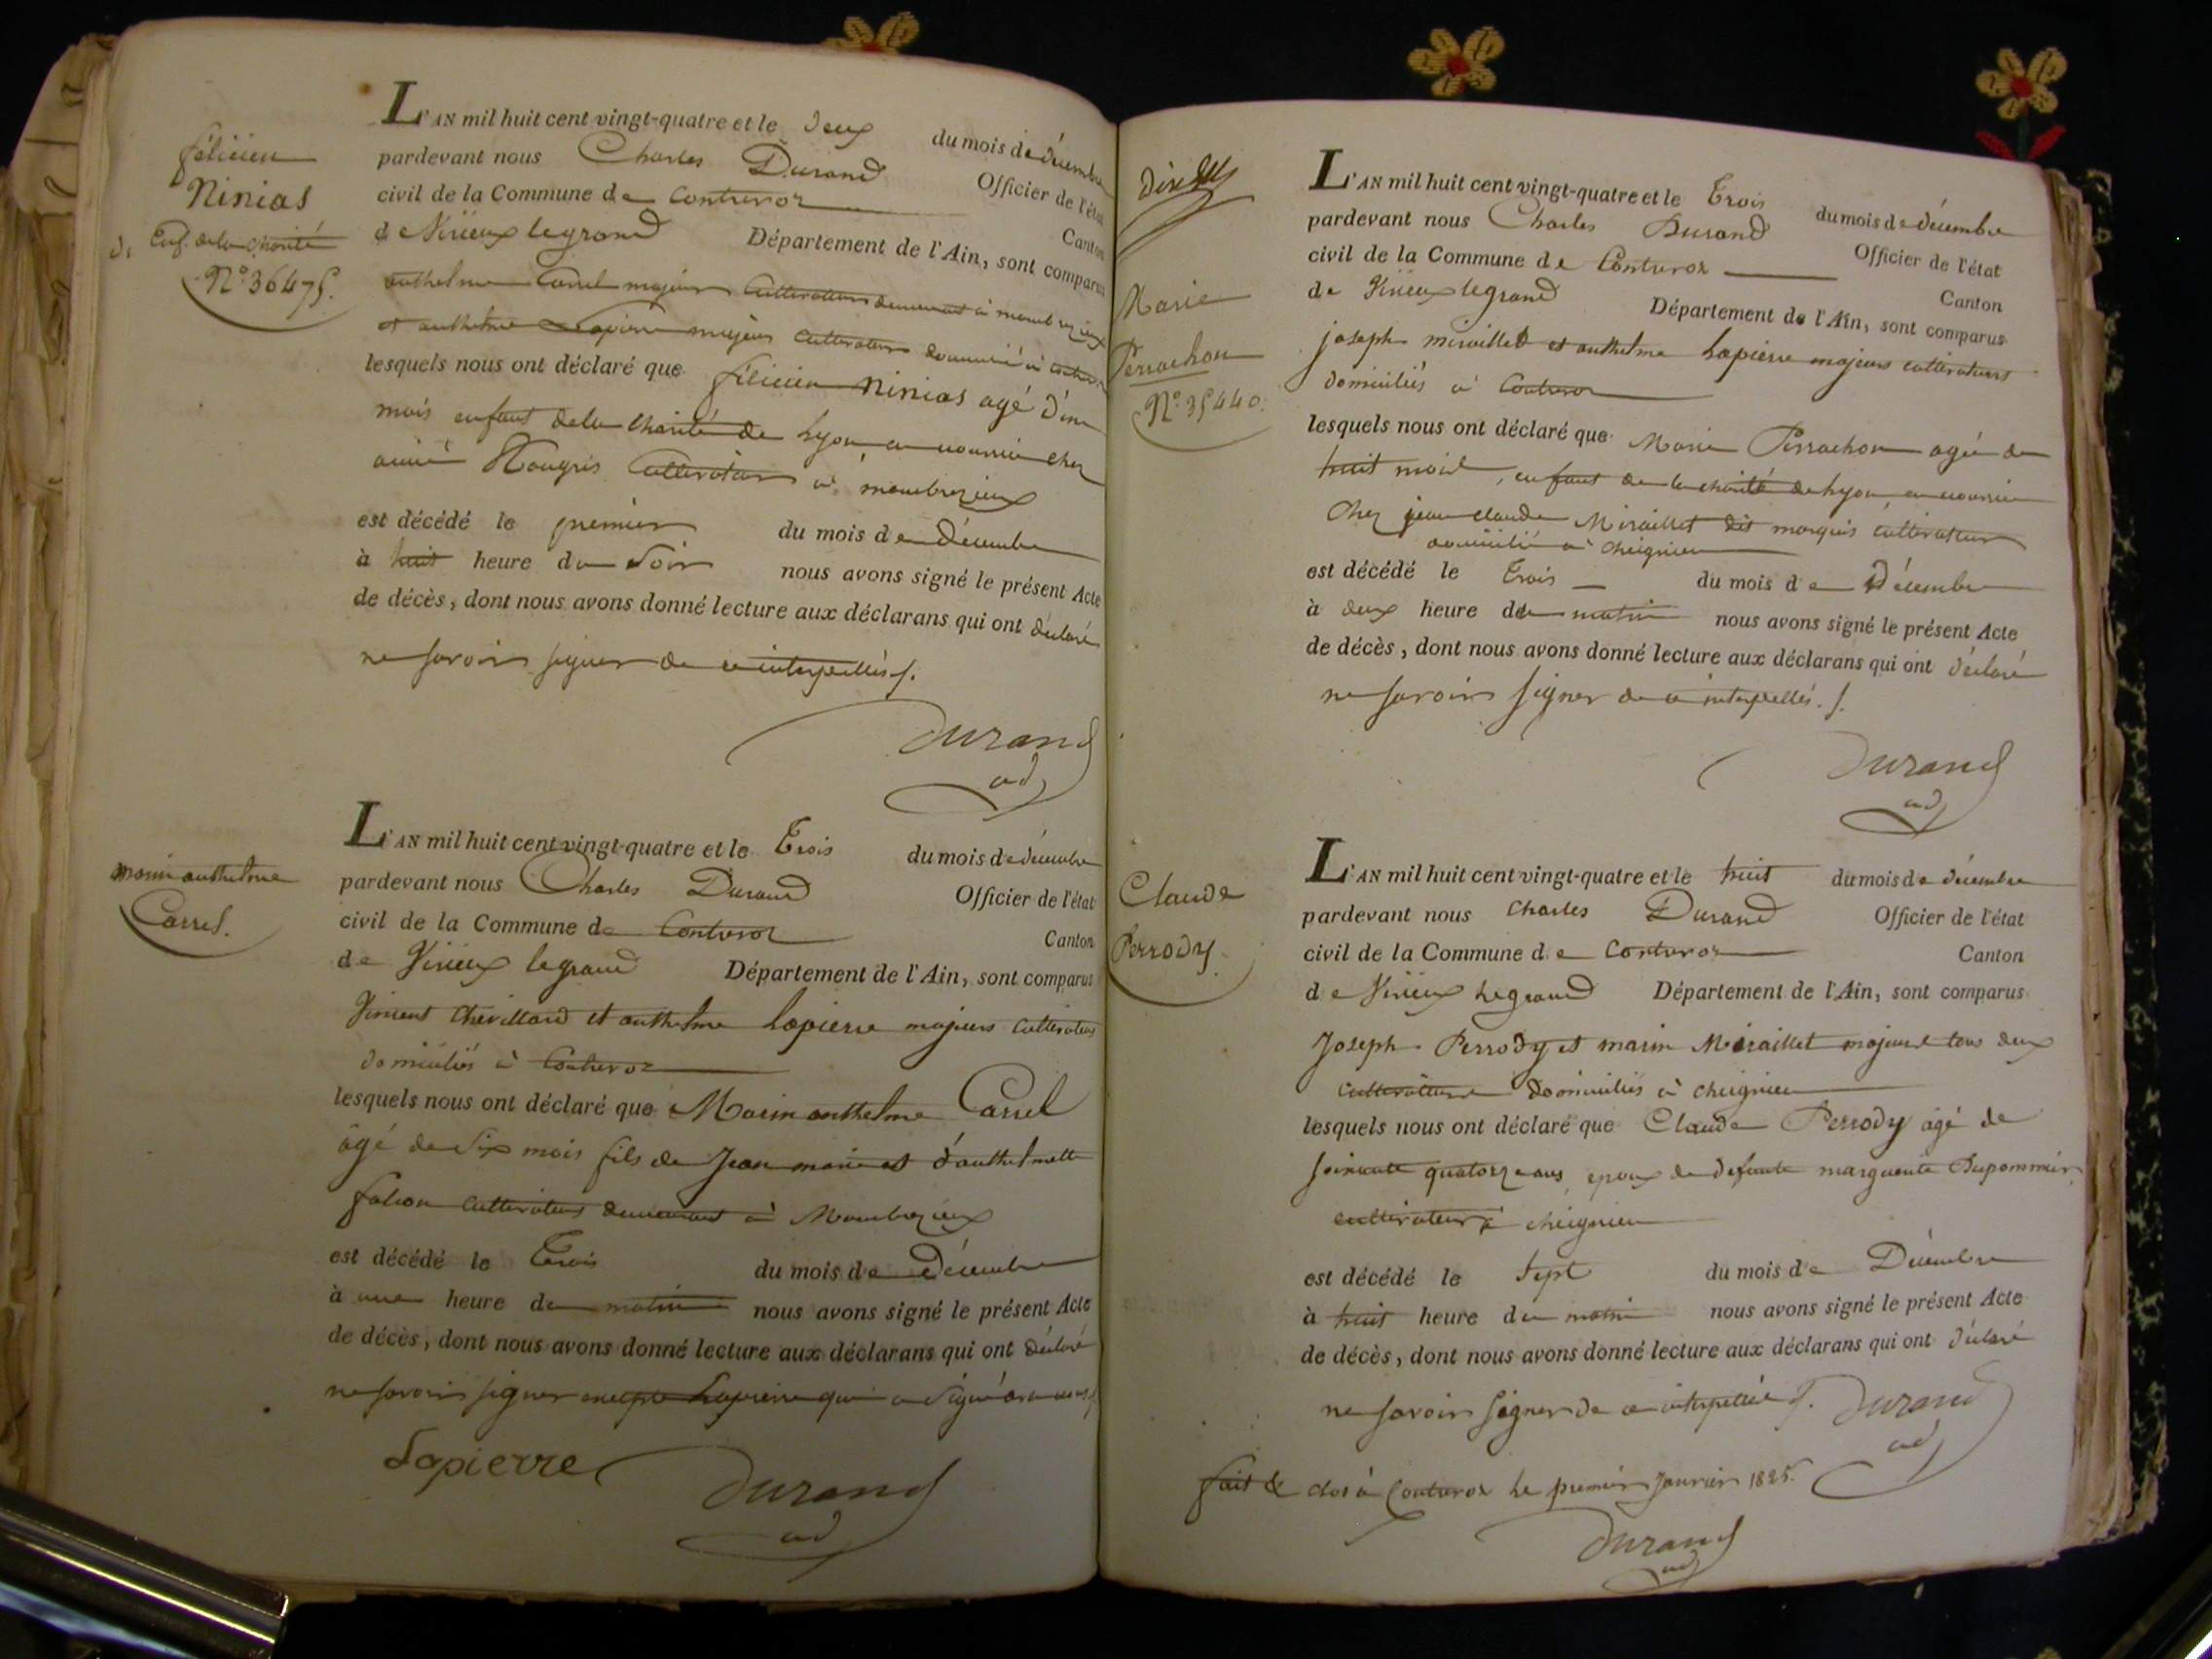 félicien
Ninias
Enf. de la charité
N.° 36475.
L'AN mil huit cent vingt-quatre et le deux du mois de décembre
pardevant nous Charles Durand Officier de l'état
civil de la Commune de Contrevoz Canton
de Virieux legrand Département de l'Ain, sont comparus
anthelme Carrel majeur Cultivateur demeurant à
et anthelme Lapierre majeur cultivateur domicilié à
lesquels nous ont déclaré que félicien Ninias agé d'un
mois enfant de la charité de Lyon en nourrice chez
Cultivateur à
est décédé le premier du mois de Décembre
à huit heure du Soir nous avons signé le présent Acte
de décès, dont nous avons donné lecture aux déclarans qui ont déclaré
ne savoir signer de ce interpellés /.
Durand
ad
marin anthelme
Carrel.
L'AN mil huit cent vingt-quatre et le Trois du mois de décembre
pardevant nous Charles Durand Officier de l'état
civil de la Commune de Contrevoz Canton
de Virieux legrand Département de l'Ain, sont comparus
Vincent Chevillard et anthelme Lapierre majeurs Cultivateurs
domiciliés à Contrevoz
lesquels nous ont déclaré que Marin anthelme Carrel
âgé de Six mois fils de Jean marie et d'anthelmette
falion cultivateurs demeurant à
est décédé le Trois du mois de Décembre
à une heure du matin nous avons signé le présent Acte
de décès, dont nous avons donné lecture aux déclarans qui ont déclaré
ne savoir signer excepté Lapierre qui a Signé avec nous /.
Lapierre Durand
ad
Marie
Perrachon
N.° 35440.
L'AN mil huit cent vingt-quatre et le Trois du mois de décembre
pardevant nous Charles Durand Officier de l'état
civil de la Commune de Contrevoz Canton
de Virieux legrand Département de l'Ain, sont comparus
joseph miraillet et anthelme Lapierre majeurs cultivateurs
domiciliés à Contrevoz
lesquels nous ont déclaré que Marie Perrachon agée de
huit mois, enfant de la charité de Lyon en nourrice
Chez jean claude Miraillet dit marquis cultivateur
domicilié à cheignieu
est décédé le Trois du mois de Décembre
à deux heure du matin nous avons signé le présent Acte
de décès, dont nous avons donné lecture aux déclarans qui ont déclaré
ne savoir signer de ce interpellés. /.
Durand
ad
Claude
Perrody.
L'AN mil huit cent vingt-quatre et le huit du mois de décembre
pardevant nous Charles Durand Officier de l'état
civil de la Commune de Contrevoz Canton
de Virieux Legrand Département de l'Ain, sont comparus
Joseph Perrody et marin Miraillet majeurs tous deux
cultivateurs domiciliés à cheignieu
lesquels nous ont déclaré que Claude Perrody âgé de
soixante quatorze ans, epoux de defunte marguerite
cultivateur à cheignieu
est décédé le Sept du mois de Décembre
à huit heure du matin nous avons signé le présent Acte
de décès, dont nous avons donné lecture aux déclarans qui ont déclaré
ne savoir signer de ce interpellés /. Durand
ad
fait & clos à Contrevoz le premier Janvier 1825.
Durand
ad